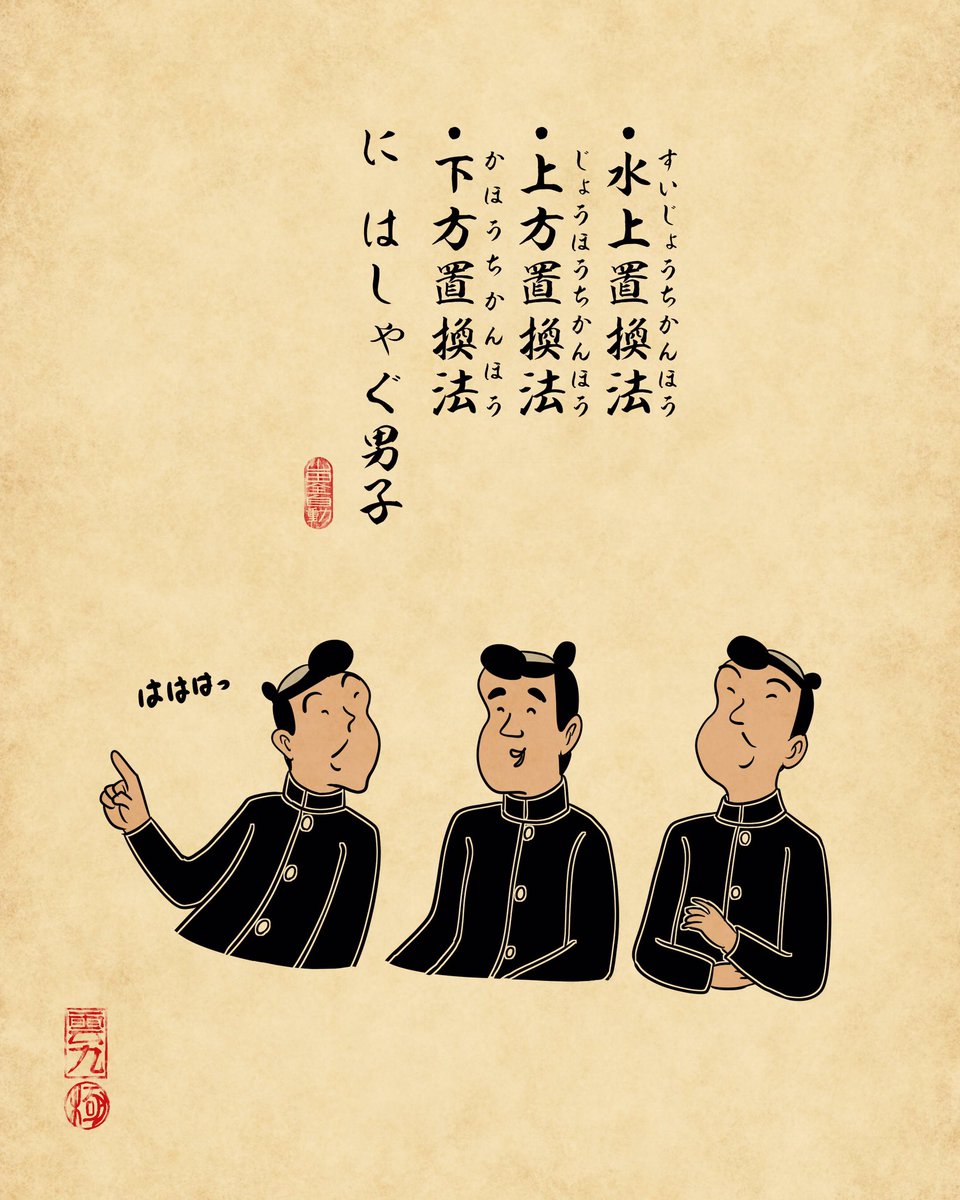 ・水上置換法
すいじょうちかんほう
・上方置換法
じょうほうちかんほう
・下方置換法
かほうちかんほう
に はしゃぐ男子
はははっ